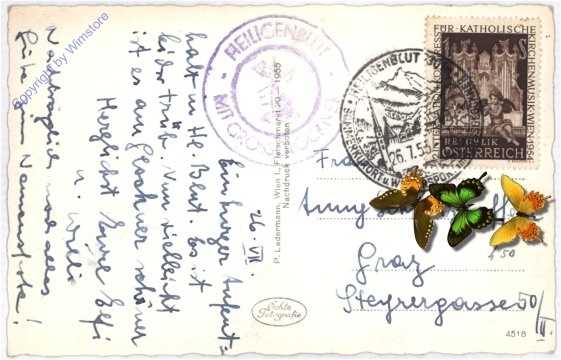 Copyright by Wimstore
HEILIGENBLUT
MIT GROSSGLOCKNER
HEILIGENBLUT
26.7.55
INTERNATIONALER KONGRESS
FÜR KATHOLISCHE
KIRCHENMUSIK WIEN 1954
REPUBLIK
ÖSTERREICH
26. VII.
Ein kurzer Aufent-
halt in Hl. Blut. Es ist
leider trüb. Nun vielleicht
ist es am Glockner schöner
Herzlichst Eure Elfi
u. Willi
Nachträglich noch alles
Gute zum Namenstag!
P. Ledermann, Wien I., Fleischmarkt 20 — 1955
Nachdruck verboten
Echte
Fotografie
Graz
Steyrergasse 50/III.
4 50
4518